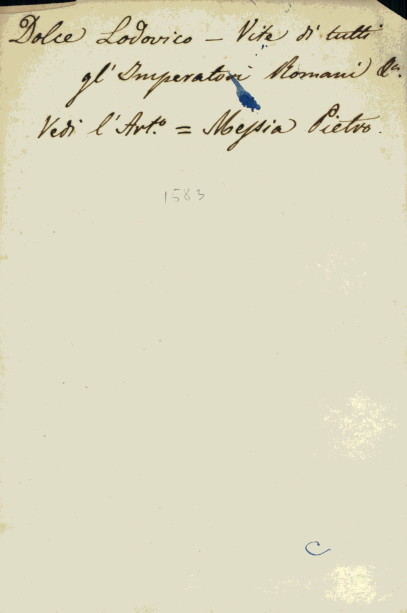 Dolce Lodovico - Vite di tutti
gl'Imperatori Romani &c.
Vedi l'Art.o = Messia Pietro.
1583
C